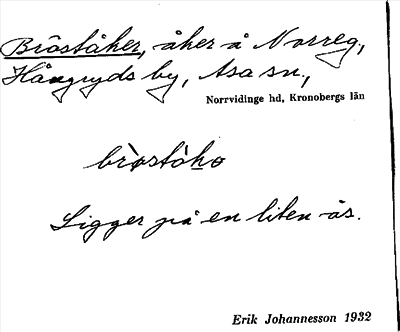 Bråståker, åker å Norreg,
Hångryds by, Asa sn.,
Norrvidinge hd, Kronobergs län
Ligger på en liten ås.
Erik Johannesson 1932